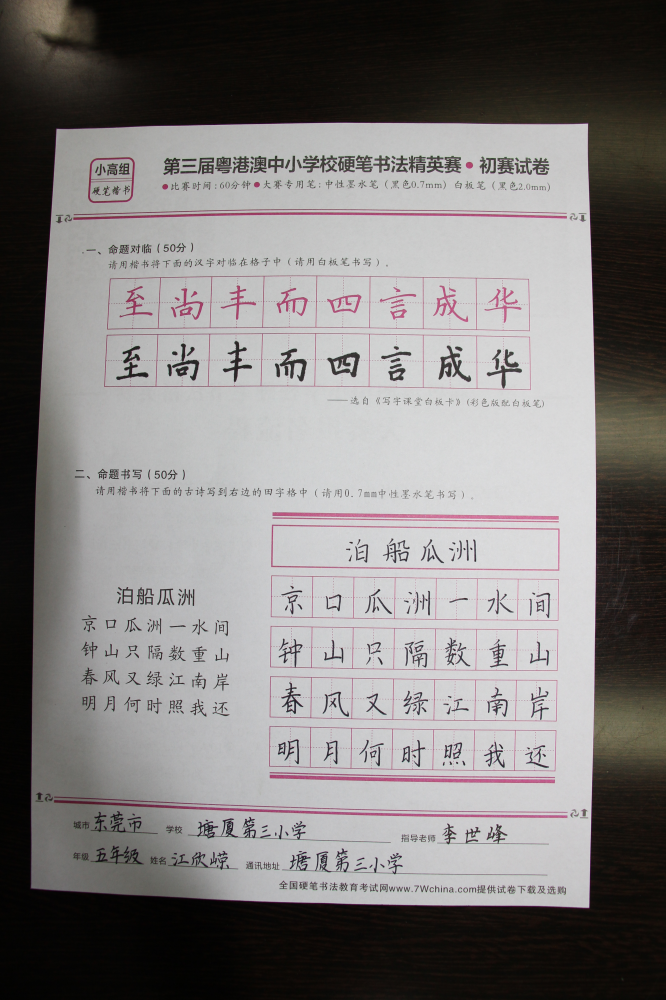 小高组
硬笔楷书
第三届粤港澳中小学校硬笔书法精英赛•初赛试卷
●比赛时间:60分钟●大赛专用笔:中性墨水笔(黑色0.7mm) 白板笔(黑色2.0mm)
一、命题对临(50分)
请用楷书将下面的汉字对临在格子中(请用白板笔书写)。
至尚丰而四言成华
至尚丰而四言成华
——选自《写字课堂白板卡》(彩色版配白板笔)
二、命题书写(50分)
请用楷书将下面的古诗写到右边的田字格中(请用0.7mm中性墨水笔书写)。
泊船瓜洲
京口瓜洲一水间
钟山只隔数重山
春风又绿江南岸
明月何时照我还
泊船瓜洲
京口瓜洲一水间
钟山只隔数重山
春风又绿江南岸
明月何时照我还
城市 东莞市 学校 塘厦第三小学 指导老师 李世峰
年级 五年级 姓名 江欣嵘 通讯地址 塘厦第三小学
全国硬笔书法教育考试网www.7Wchina.com提供试卷下载及选购